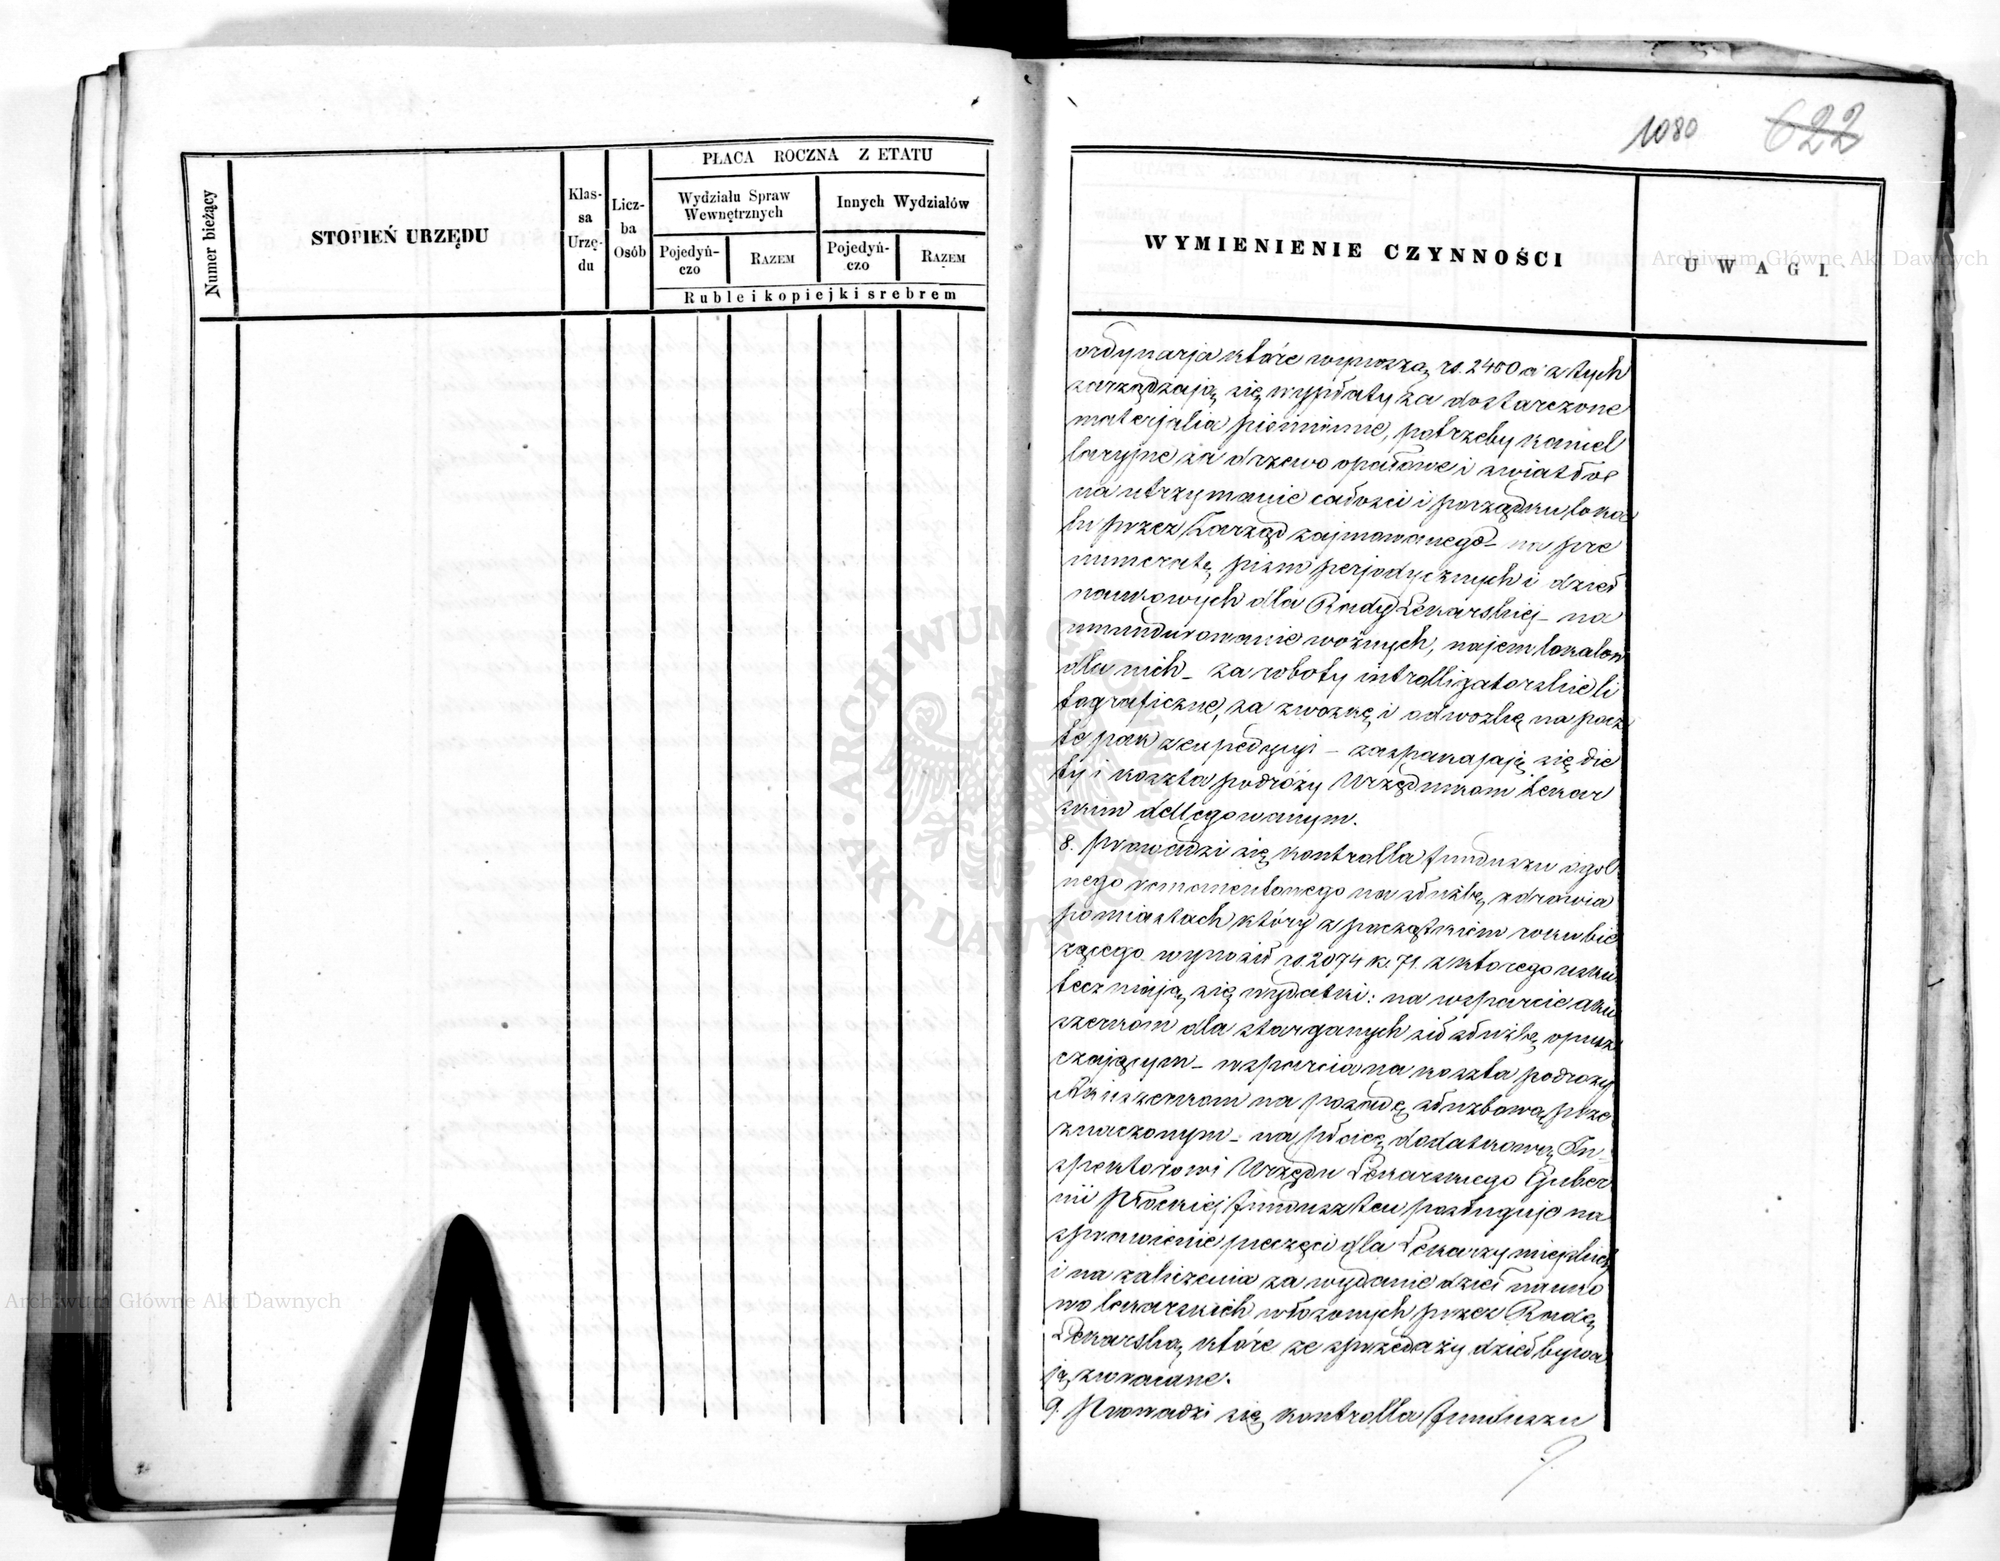 Numer bieżący
STOPIEŃ URZĘDU
Klas-
sa
Urzę-
du
Licz-
ba
Osób
PŁACA ROCZNA Z ETATU
Wydziału Spraw
Wewnętrznych
Innych Wydziałów
Pojedyń-
czo
RAZEM
Pojedyń-
czo
RAZEM
Ruble i kopiejki srebrem
1080 622
WYMIENIENIE CZYNNOŚCI
UWAGI.
ordynarja które wynoszą rs. 2450 a z tych
zarządzają się wypłaty za dostarczone
materjalia piśmienne, potrzeby kancel
laryjne za drzewo opałowe i światło
na utrzymanie całości i porządku loka
lu przez Zarząd zajmowanego – na pre
numeratę pism perjodycznych i dzieł
naukowych dla Rady Lekarskiej – na
umundurowanie woźnych, najem lokalów
dla nich – za roboty introlligatorskie li
tograficzne, za zwózkę i odwózkę na pocz
tę pak z expedycyi – zaspakajają się die
ty i koszta podróży Urzędnikom Lekar
skim dellegowanym.
8. Prowadzi się kontrolla funduszu ogól
nego remanentowego na służbę zdrowia
po miastach który z początkiem roku bie
żącego wynosił rs. 2074 k. 71. z którego usku
teczniają się wydatki: na wsparcie aku
szerkom dla starganych sił służbę opusz
czającym – wsparcia na koszta podróży
Akuszerkom na posadę służbową prze
znaczonym – na płacę dodatkową In-
spektorowi Urzędu Lekarskiego Guber
nii Płockiej fundusz ten posługuje na
sprawienie pieczęci dla Lekarzy miejskich
i na zaliczenia za wydanie dzieł nauko
wo lekarskich włożonych przez Radę
Lekarską które ze sprzedaży dzieł bywa
ją zwracane.
9. Prowadzi się kontrolla funduszu
ARCHIWUM GŁÓWNE AKT DAWNYCH
Archiwum Główne Akt Dawnych
Archiwum Główne Akt Dawnych